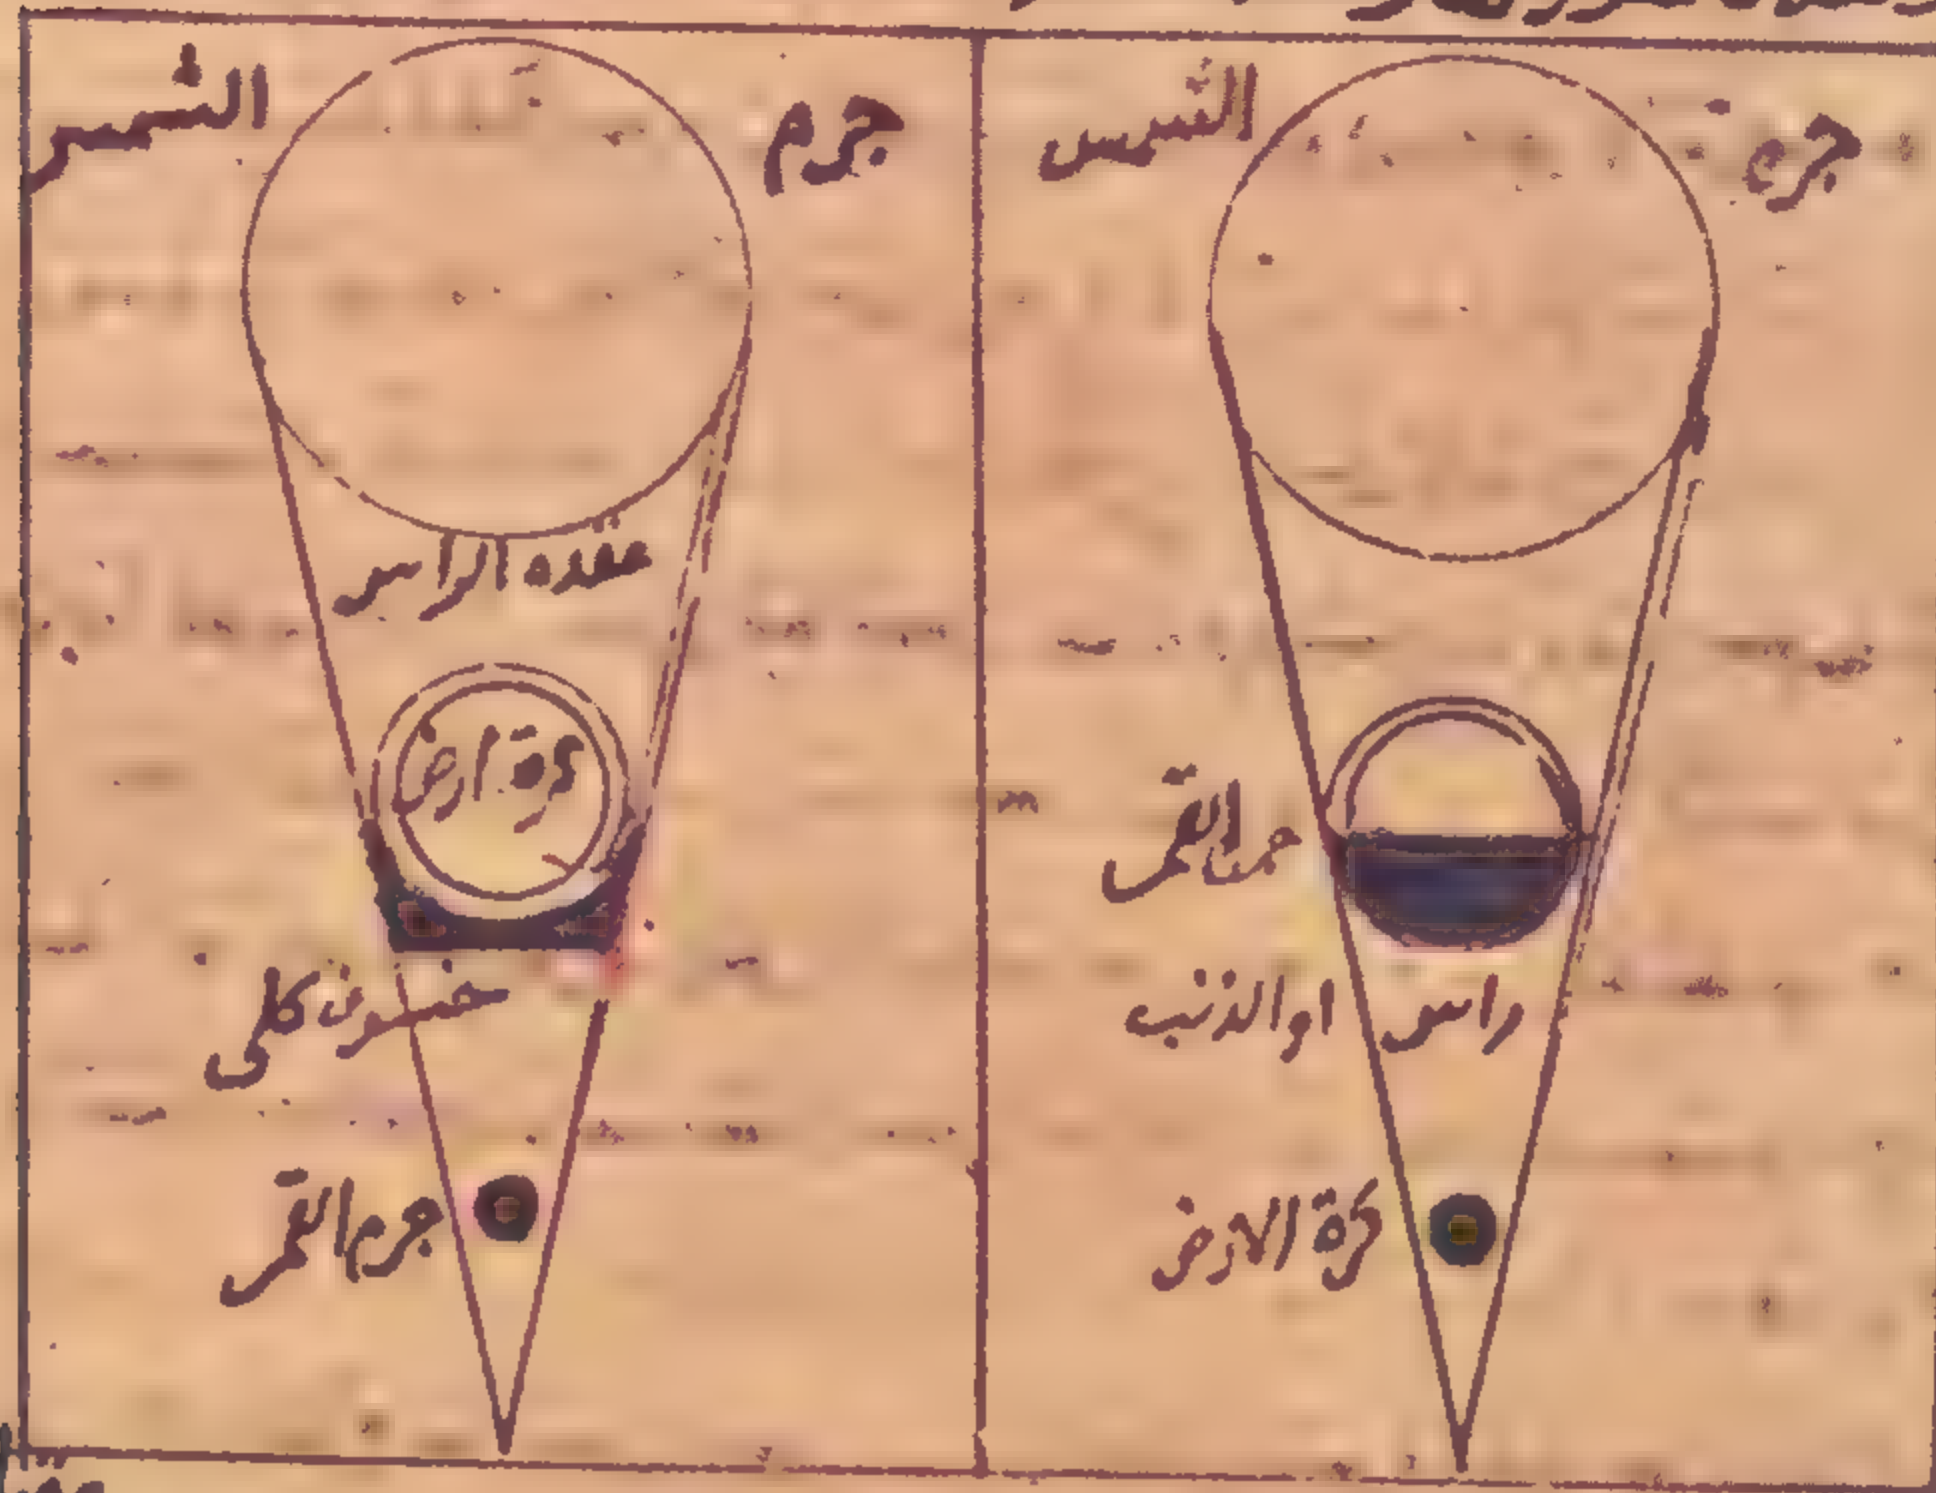 جرم الشمس
جرم القمر
راس او الذنب
كرة الارض
جرم الشمس
عقده الراس
كرة ارض
خسوف كلى
جرم القمر